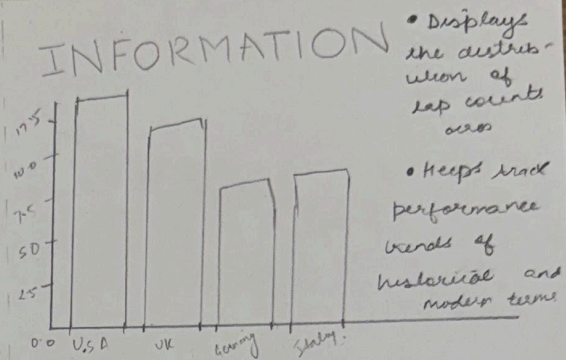 INFORMATION
• Displays
the distrib-
ution of
lap counts
• Helps track
performance
trends of
historical and
modern teams
17.5
10.0
7.5
50
25
0.0
U.S.A
UK